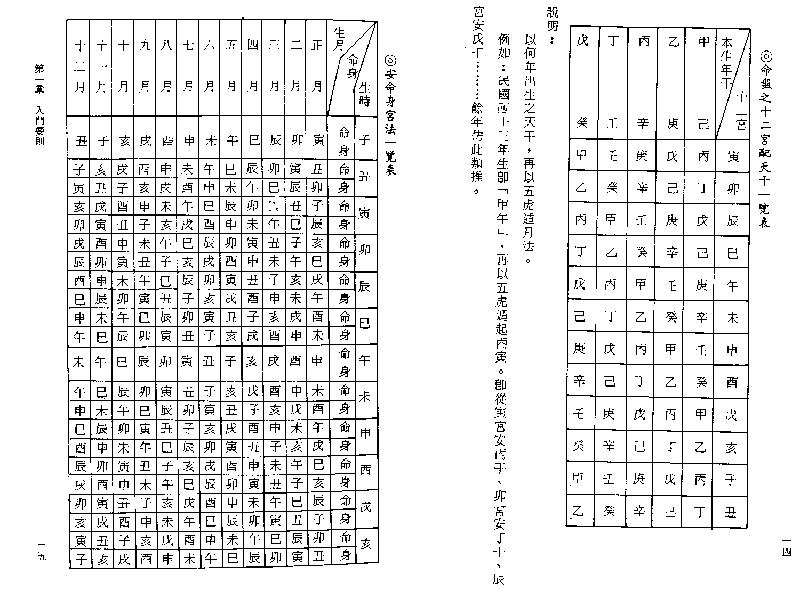 ◎命盤之十二宮配天干一覽表
本生年干 十二宮 寅 卯 辰 巳 午 未 申 酉 戌 亥 子 丑
甲 己 丙 丁 戊 己 庚 辛 壬 癸 甲 乙 丙 丁
乙 庚 戊 己 庚 辛 壬 癸 甲 乙 丙 丁 戊 己
丙 辛 庚 辛 壬 癸 甲 乙 丙 丁 戊 己 庚 辛
丁 壬 壬 癸 甲 乙 丙 丁 戊 己 庚 辛 壬 癸
戊 癸 甲 乙 丙 丁 戊 己 庚 辛 壬 癸 甲 乙
說明：
以何年出生之天干，再以五虎遁月法。
例如：民國四十三年生即「甲午」，再以五虎遁起丙寅。即從寅宮安丙干、卯宮安丁干、辰
宮安戊干………餘年仿此類推。
一四
◎安命身宮法一覽表
生月 命身 生時 子 丑 寅 卯 辰 巳 午 未 申 酉 戌 亥
命身 命身 命身 命身 命身 命身 命身 命身 命身 命身 命身 命身
正月 寅 丑卯 子辰 亥巳 戌午 酉未 申 未酉 午戌 巳亥 辰子 卯丑
二月 卯 寅辰 丑巳 子午 亥未 戌申 酉 申戌 未亥 午子 巳丑 辰寅
三月 辰 卯巳 寅午 丑未 子申 亥酉 戌 酉亥 申子 未丑 午寅 巳卯
四月 巳 辰午 卯未 寅申 丑酉 子戌 亥 戌子 酉丑 申寅 未卯 午辰
五月 午 巳未 辰申 卯酉 寅戌 丑亥 子 亥丑 戌寅 酉卯 申辰 未巳
六月 未 午申 巳酉 辰戌 卯亥 寅子 丑 子寅 亥卯 戌辰 酉巳 申午
七月 申 未酉 午戌 巳亥 辰子 卯丑 寅 丑卯 子辰 亥巳 戌午 酉未
八月 酉 申戌 未亥 午子 巳丑 辰寅 卯 寅辰 丑巳 子午 亥未 戌申
九月 戌 酉亥 申子 未丑 午寅 巳卯 辰 卯巳 寅午 丑未 子申 亥酉
十月 亥 戌子 酉丑 申寅 未卯 午辰 巳 辰午 卯未 寅申 丑酉 子戌
十一月 子 亥丑 戌寅 酉卯 申辰 未巳 午 巳未 辰申 卯酉 寅戌 丑亥
十二月 丑 子寅 亥卯 戌辰 酉巳 申午 未 午申 巳酉 辰戌 卯亥 寅子
第一章 入門要則
一五